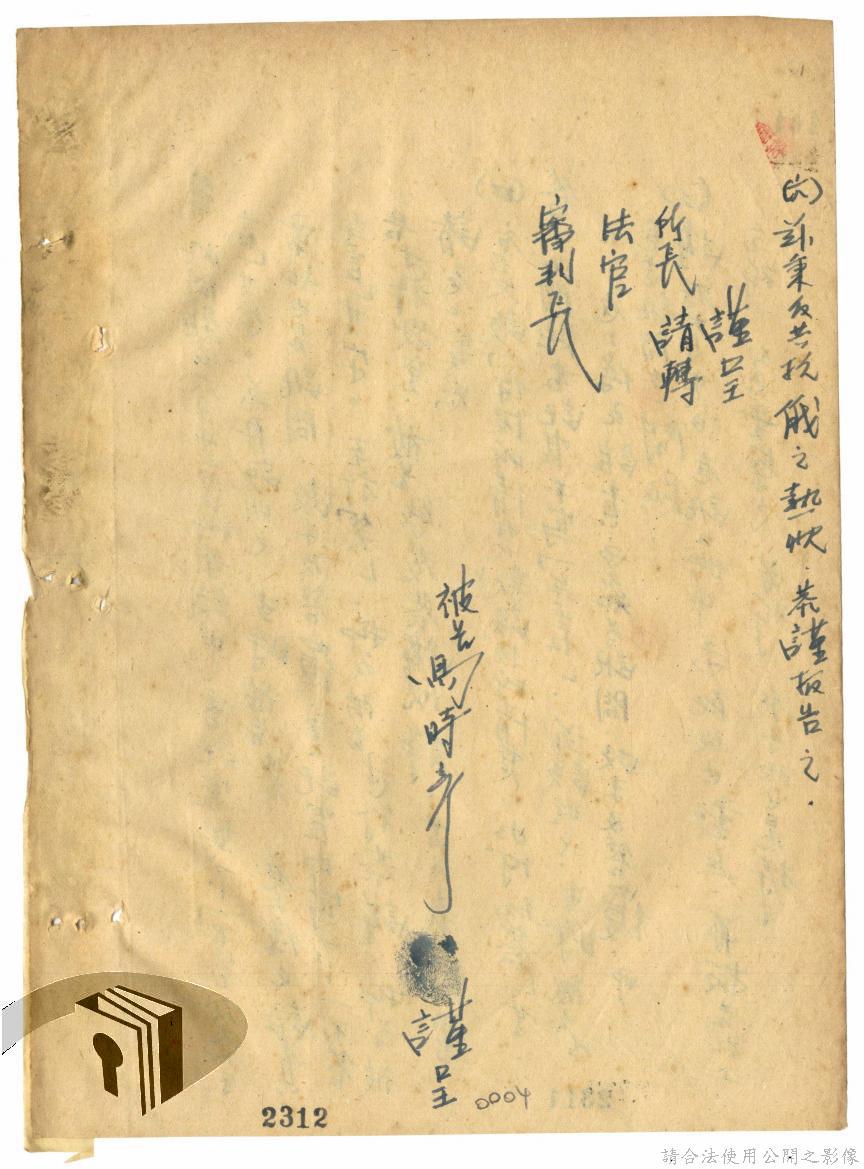 (六)茲秉反共抗俄之熱忱.恭謹报告之.
謹呈
所長 請轉
法官
審判長
被告馮時彥
謹呈
0004
2312
請合法使用公開之影像